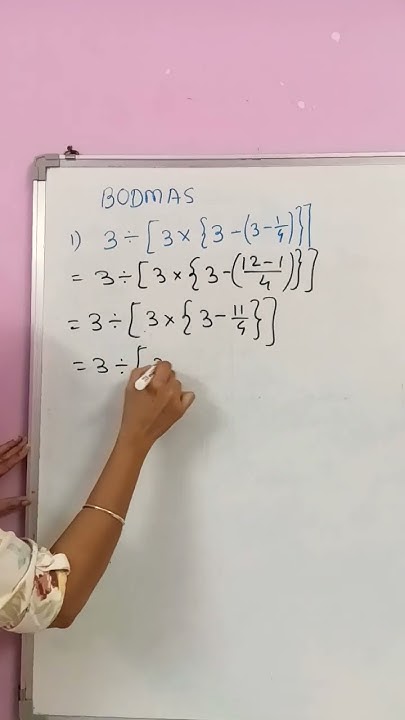 BODMAS
1) 3 ÷ [3 × {3 - (3 - 1/4)}]
= 3 ÷ [3 × {3 - (12-1/4)}]
= 3 ÷ [3 × {3 - 11/4}]
= 3 ÷ [